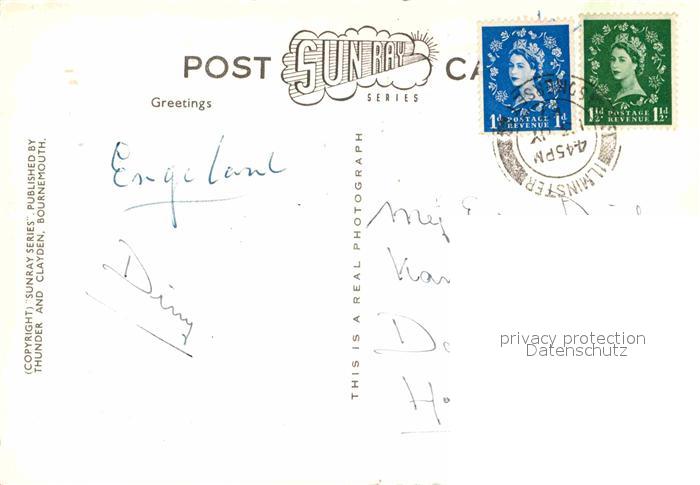 POST CA
SUN RAY
SERIES
1d POSTAGE REVENUE 1d
1½d POSTAGE REVENUE 1½d
4.45PM
ILMINSTER
Greetings
Engeland
Diny
(COPYRIGHT) "SUNRAY SERIES" PUBLISHED BY
THUNDER AND CLAYDEN, BOURNEMOUTH.
THIS IS A REAL PHOTOGRAPH
Mej
privacy protection
Datenschutz